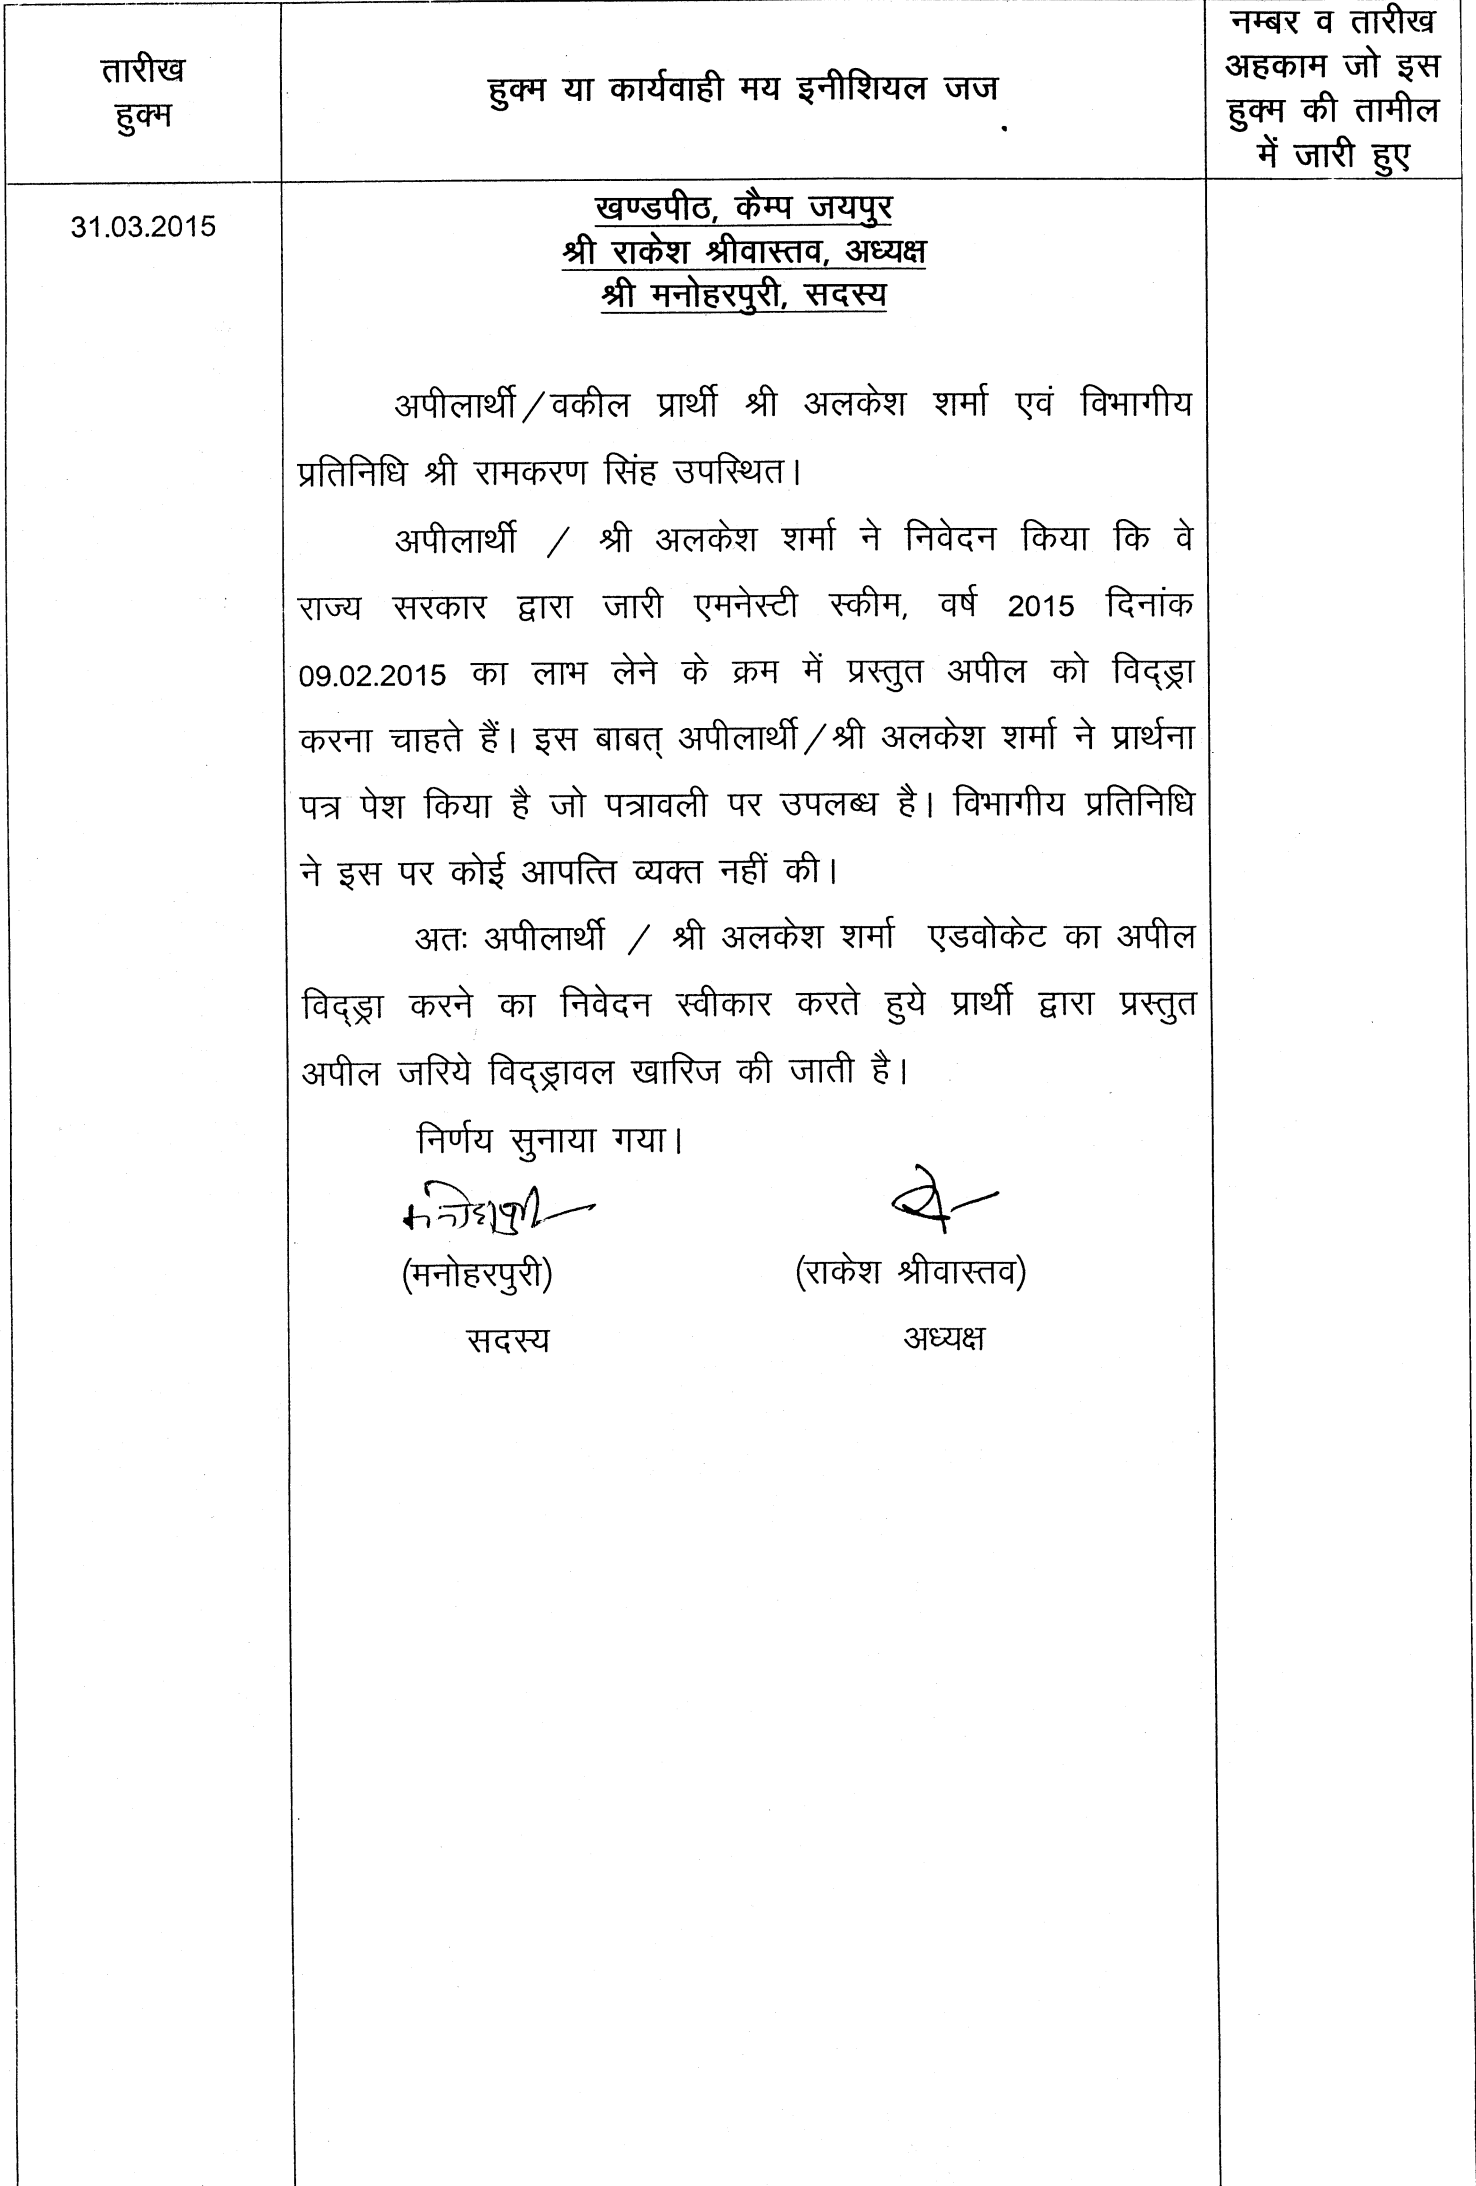 तारीख
हुक्म
हुक्म या कार्यवाही मय इनीशियल जज
नम्बर व तारीख
अहकाम जो इस
हुक्म की तामील
में जारी हुए
31.03.2015
खण्डपीठ, कैम्प जयपुर
श्री राकेश श्रीवास्तव, अध्यक्ष
श्री मनोहरपुरी, सदस्य
अपीलार्थी/वकील प्रार्थी श्री अलकेश शर्मा एवं विभागीय
प्रतिनिधि श्री रामकरण सिंह उपस्थित।
अपीलार्थी / श्री अलकेश शर्मा ने निवेदन किया कि वे
राज्य सरकार द्वारा जारी एमनेस्टी स्कीम, वर्ष 2015 दिनांक
09.02.2015 का लाभ लेने के क्रम में प्रस्तुत अपील को विद्ड्रा
करना चाहते हैं। इस बाबत् अपीलार्थी/श्री अलकेश शर्मा ने प्रार्थना
पत्र पेश किया है जो पत्रावली पर उपलब्ध है। विभागीय प्रतिनिधि
ने इस पर कोई आपत्ति व्यक्त नहीं की।
अतः अपीलार्थी / श्री अलकेश शर्मा एडवोकेट का अपील
विद्ड्रा करने का निवेदन स्वीकार करते हुये प्रार्थी द्वारा प्रस्तुत
अपील जरिये विद्ड्रावल खारिज की जाती है।
निर्णय सुनाया गया।
मनोहरपुरी
(मनोहरपुरी) (राकेश श्रीवास्तव)
सदस्य अध्यक्ष